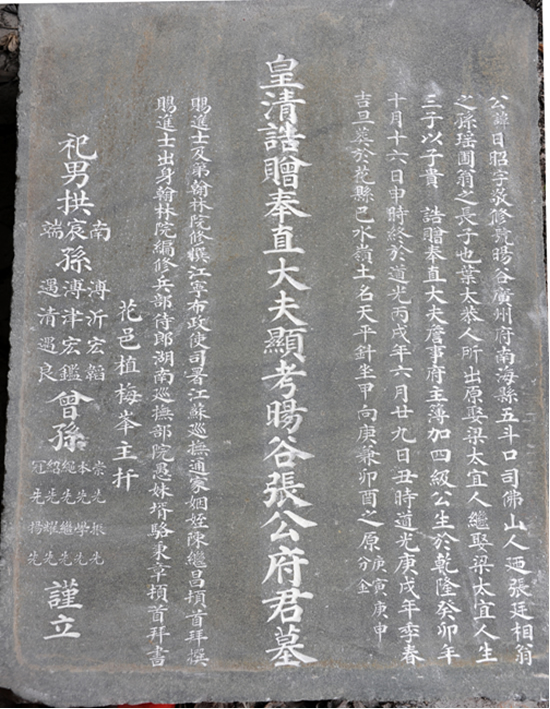 公諱日昭字敬修號暘谷廣州府南海縣五斗口司佛山人廼張廷相翁
之孫瑤圃翁之長子也葉太恭人所出原娶梁太宜人繼娶梁太宜人生
三子以子貴 誥贈奉直大夫詹事府主薄加四級公生於乾隆癸卯年
十月十六日申時終於道光丙戌年六月廿九日丑時道光庚戌年季春
吉旦葬於花縣巴水嶺土名天平針坐甲向庚兼卯酉之原庚寅庚申分金
皇清誥贈奉直大夫顯考暘谷張公府君墓
賜進士及第翰林院修撰江寧布政使司署江蘇巡撫通家姻姪陳繼昌頓首拜撰
賜進士出身翰林院編修兵部侍郎湖南巡撫部院愚妹壻駱秉章頓首拜書
花邑植梅峯主扦
祀男拱南宸端孫溥沂宏韜溥津宏鑑遇清遇良曾孫崇先本先繩先紹先冠先 學先繼先耀先揚先謹立